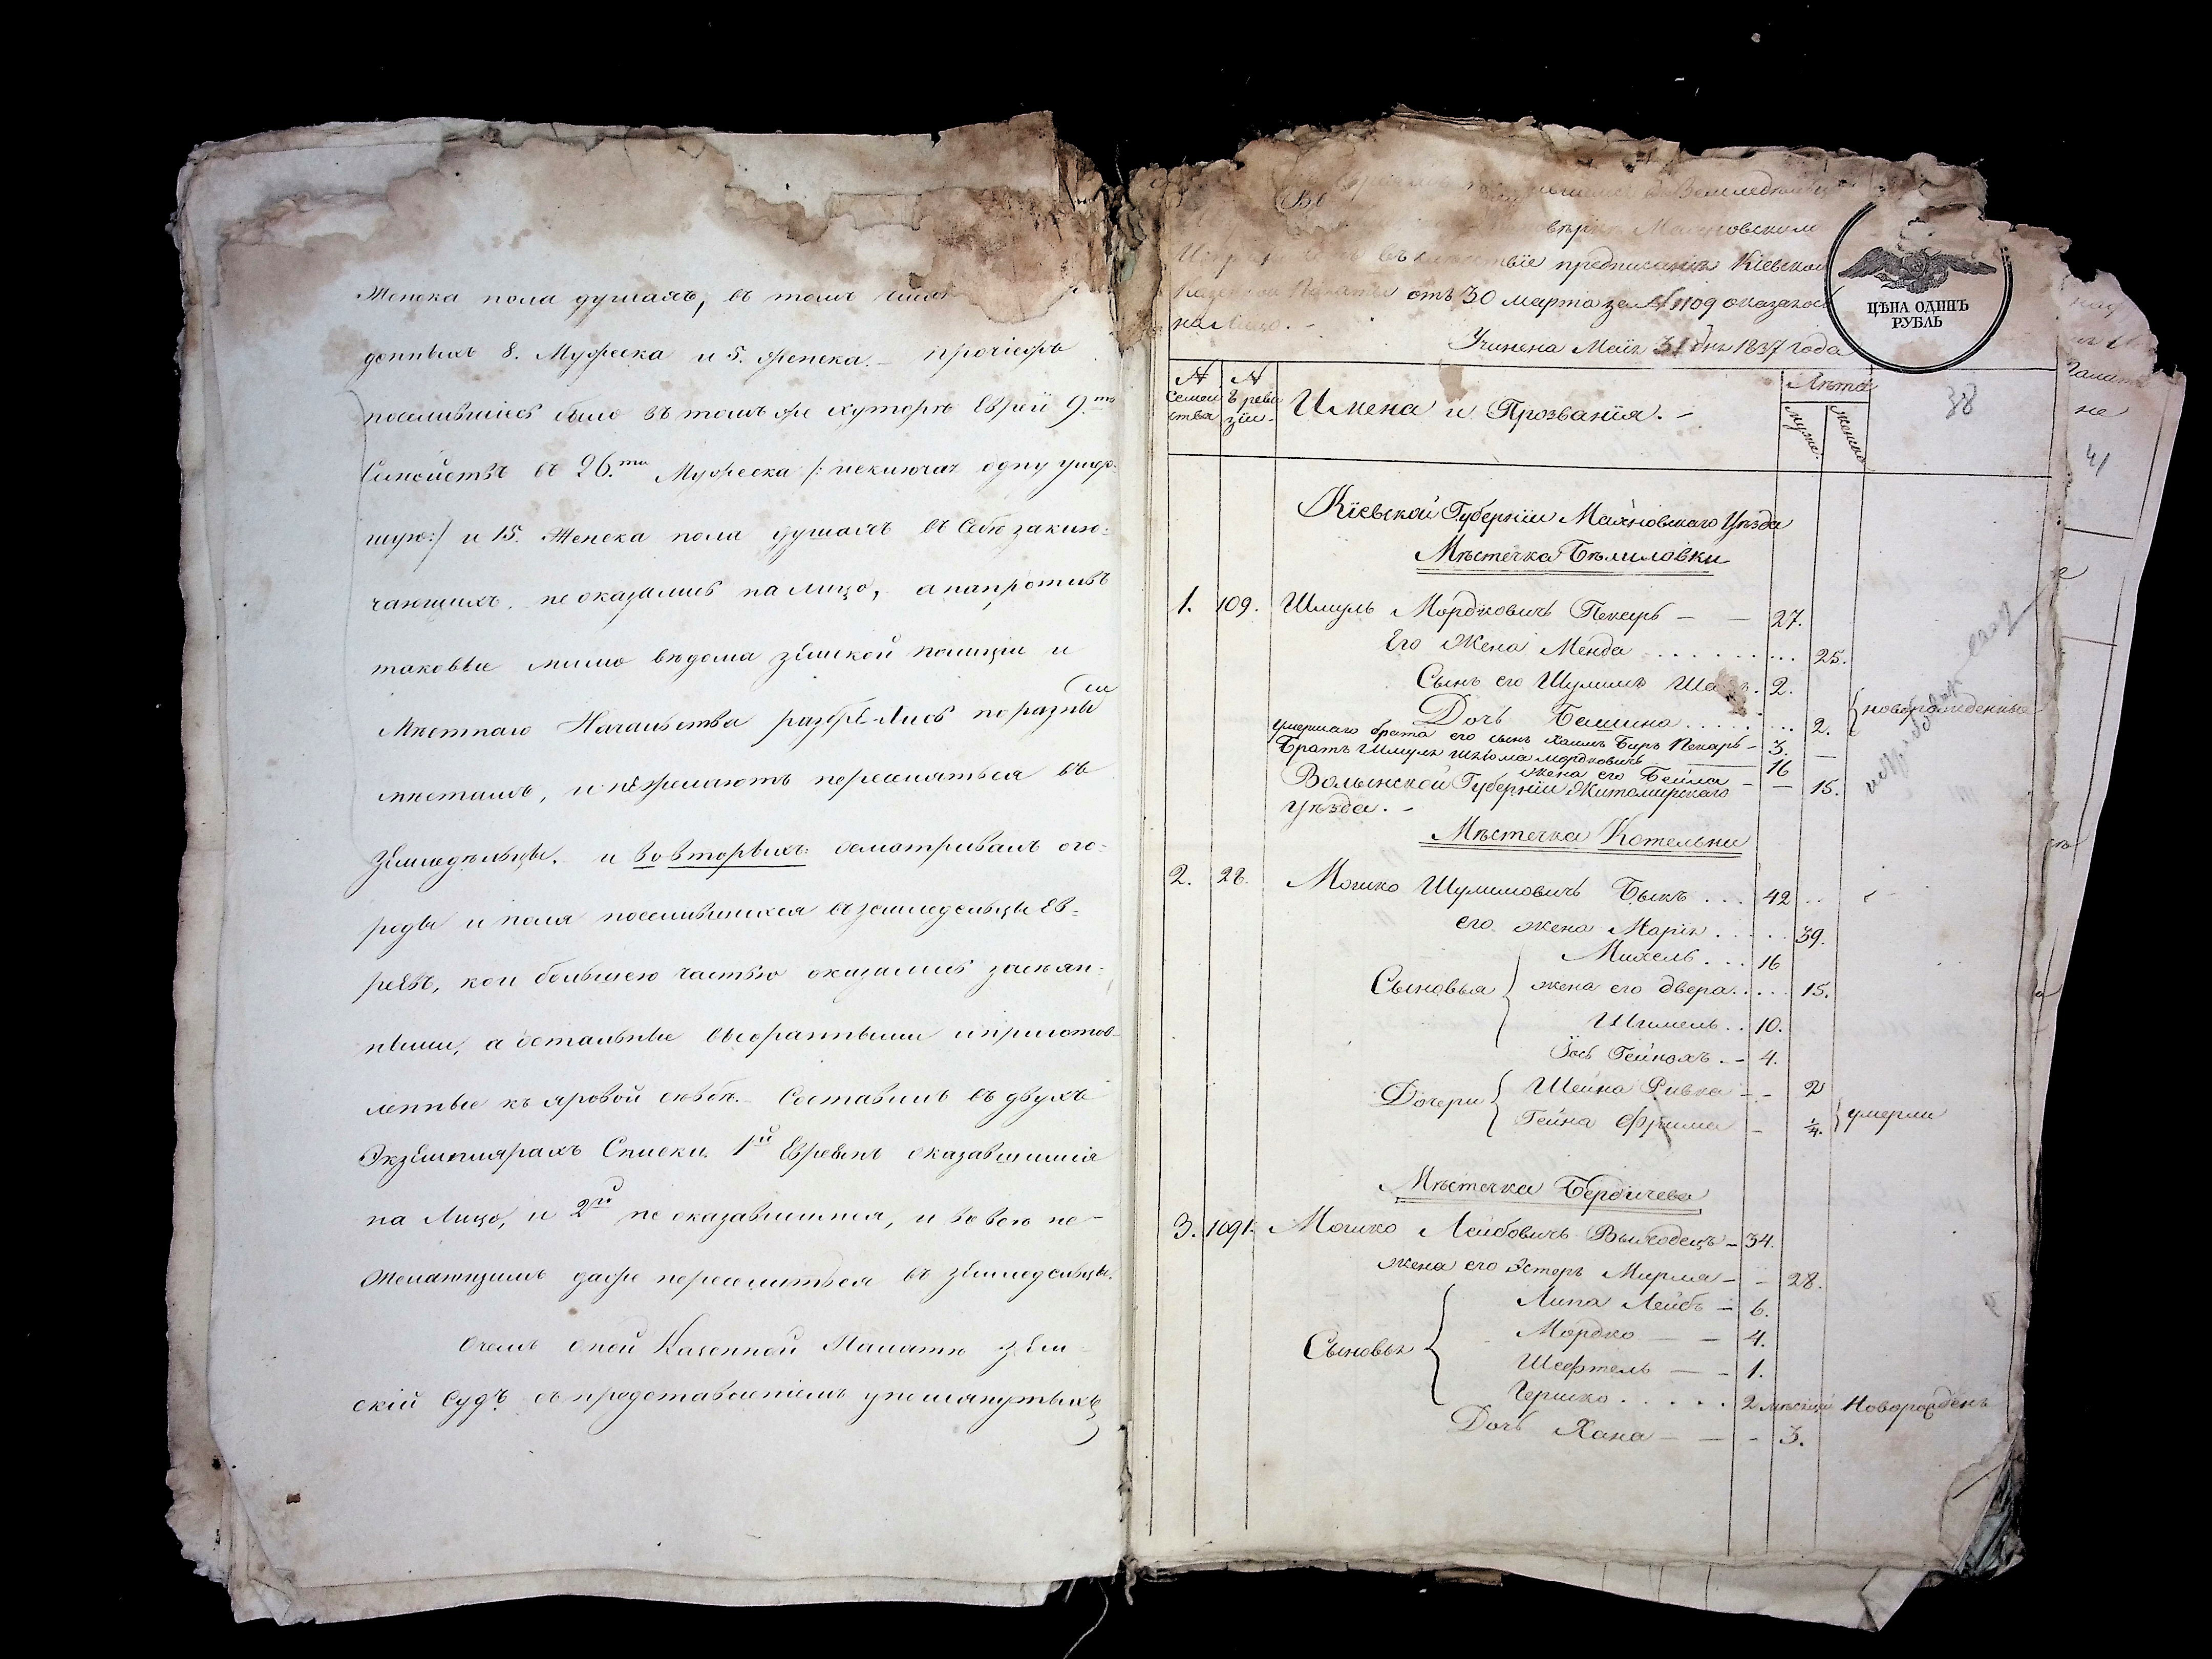 Женска пола душахъ, въ томъ числѣ
денныхъ 8. Мужеска и 5. женска. – прочіежъ
поселившіесь было въ томъ же хуторѣ Еврей 9.ть
Семействъ въ 26.ти Мужеска /: исключая одну умер-
шую :/ и 15. Женска пола душахъ въ Себѣ заклю-
чающихъ, не оказались на лицо, а напротивъ
таковые мимо вѣдома земской полиціи и
Мѣстнаго Начальства разбрелись по разнымъ
мѣстамъ, и не желаютъ переселяться въ
Земледѣльцы, и во вторыхъ: осматривалъ ого-
роды и поля поселившихся въ земледельцы Ев-
реевъ, кои большею частью оказались засеян-
ными, а остальные взоранными и приготов-
ленные къ яровой севбѣ. Составилъ въ двухъ
Экземплярахъ Списки. 1й Евреямъ оказавшимся
на Лицо, и 2й не оказавшимся, и вовсе не-
желающимъ даже переселиться въ земледельцы.
О чемъ оной Казенной Палатѣ зем-
скій Судъ съ представленіемъ упомянутыхъ
Махновскимъ
вслѣдствіе предписанія Кіевской
Казенной Палаты отъ 30 марта за № 1109 оказалось
на Лицо. –
Учинена Маія 31 дня 1837 года
ЦѢНА ОДИНЪ
РУБЛЬ
38
№ Семей ства
№ Ъ реви зіи.
Имена и Прозванія. –
Лѣта
мужс.
женско
Кіевской Губерніи Махновскаго Уѣзда
Мѣстечка Бѣлиловки
1. 109. Шмуль Мордковичъ Пекаръ – – 27.
Его Жена Менда . . . . . . . . . 25.
Сынъ его Шулимъ 2.
Дочь Башина . . . . . . . 2. { новорожденные
умершаго брата его сынъ Хаимъ Беръ Пекарь – 3. –
Братъ Шмуля Шлiома Мордковичъ 16
жена его Бейла – – 15.
Волынской Губерніи Житомирскаго
уѣзда. –
Мѣстечка Котельни
2. 28. Мошко Шулимовичъ Быкъ . . . 42 . .
его жена Марія . . . . . 39.
Михель . . . 16
Сыновья { жена его двера . . . . 15.
Шмиель . . 10.
Іось Гейнохъ . – 4.
Дочери { Шейна Ривка – – 2
Гейна Фрима – ¼. } умерли
Мѣстечка Бердичева
3. 1091. Мошко Лейбовичъ Выходецъ – 34.
жена его Эстеръ Мирма – – 28.
Липа Лейбъ – 6.
Мордко – – 4.
Сыновья { Шефтель – – 1.
Гершко . . . . . 2 мѣсяцы Новорожденъ
Дочь Хана – – – 3.
Палата
не
41